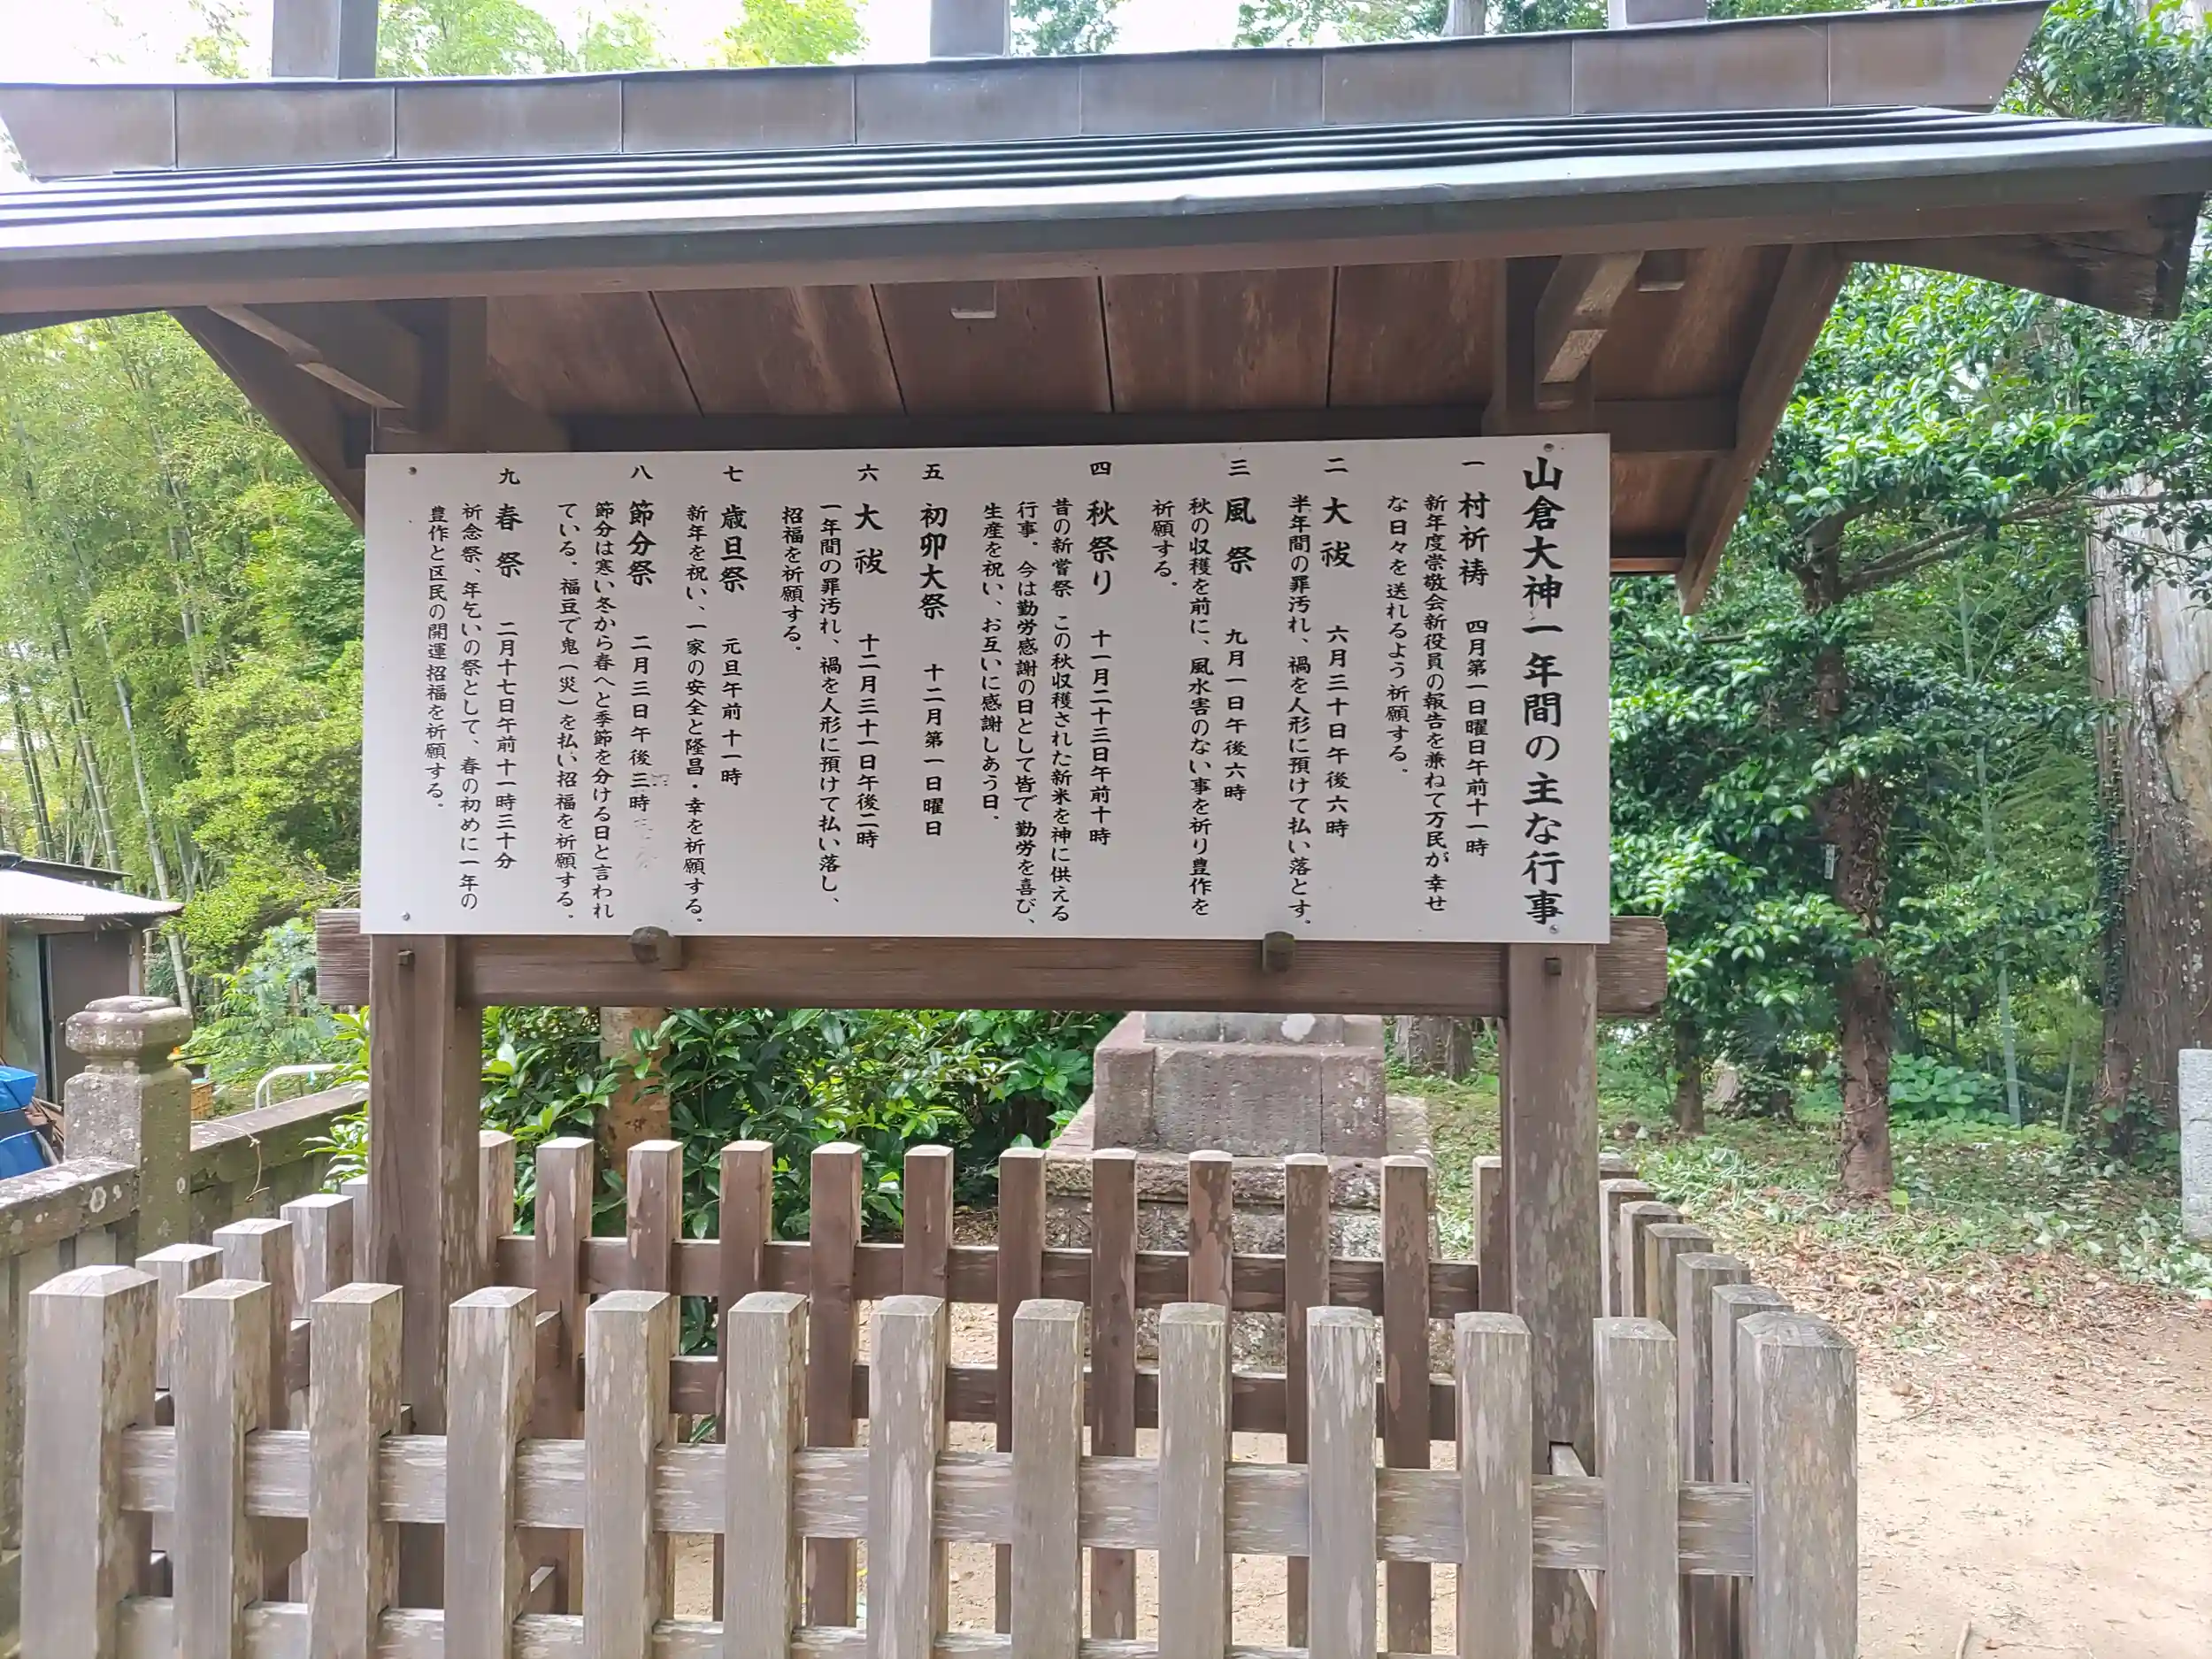 山倉大神一年間の主な行事
一 村祈祷 四月第一日曜日午前十一時
新年度崇敬会新役員の報告を兼ねて万民が幸せ
な日々を送れるよう祈願する。
二 大祓 六月三十日午後六時
半年間の罪汚れ、禍を人形に預けて払い落とす。
三 風祭 九月一日午後六時
秋の収穫を前に、風水害のない事を祈り豊作を
祈願する。
四 秋祭り 十一月二十三日午前十時
昔の新嘗祭 この秋収穫された新米を神に供える
行事。今は勤労感謝の日として皆で勤労を喜び、
生産を祝い、お互いに感謝しあう日。
五 初卯大祭 十二月第一日曜日
六 大祓 十二月三十一日午後二時
一年間の罪汚れ、禍を人形に預けて払い落し、
招福を祈願する。
七 歳旦祭 元旦午前十一時
新年を祝い、一家の安全と隆昌・幸を祈願する。
八 節分祭 二月三日午後三時
節分は寒い冬から春へと季節を分ける日と言われ
ている。福豆で鬼(災)を払い招福を祈願する。
九 春祭 二月十七日午前十一時三十分
祈念祭、年乞いの祭として、春の初めに一年の
豊作と区民の開運招福を祈願する。